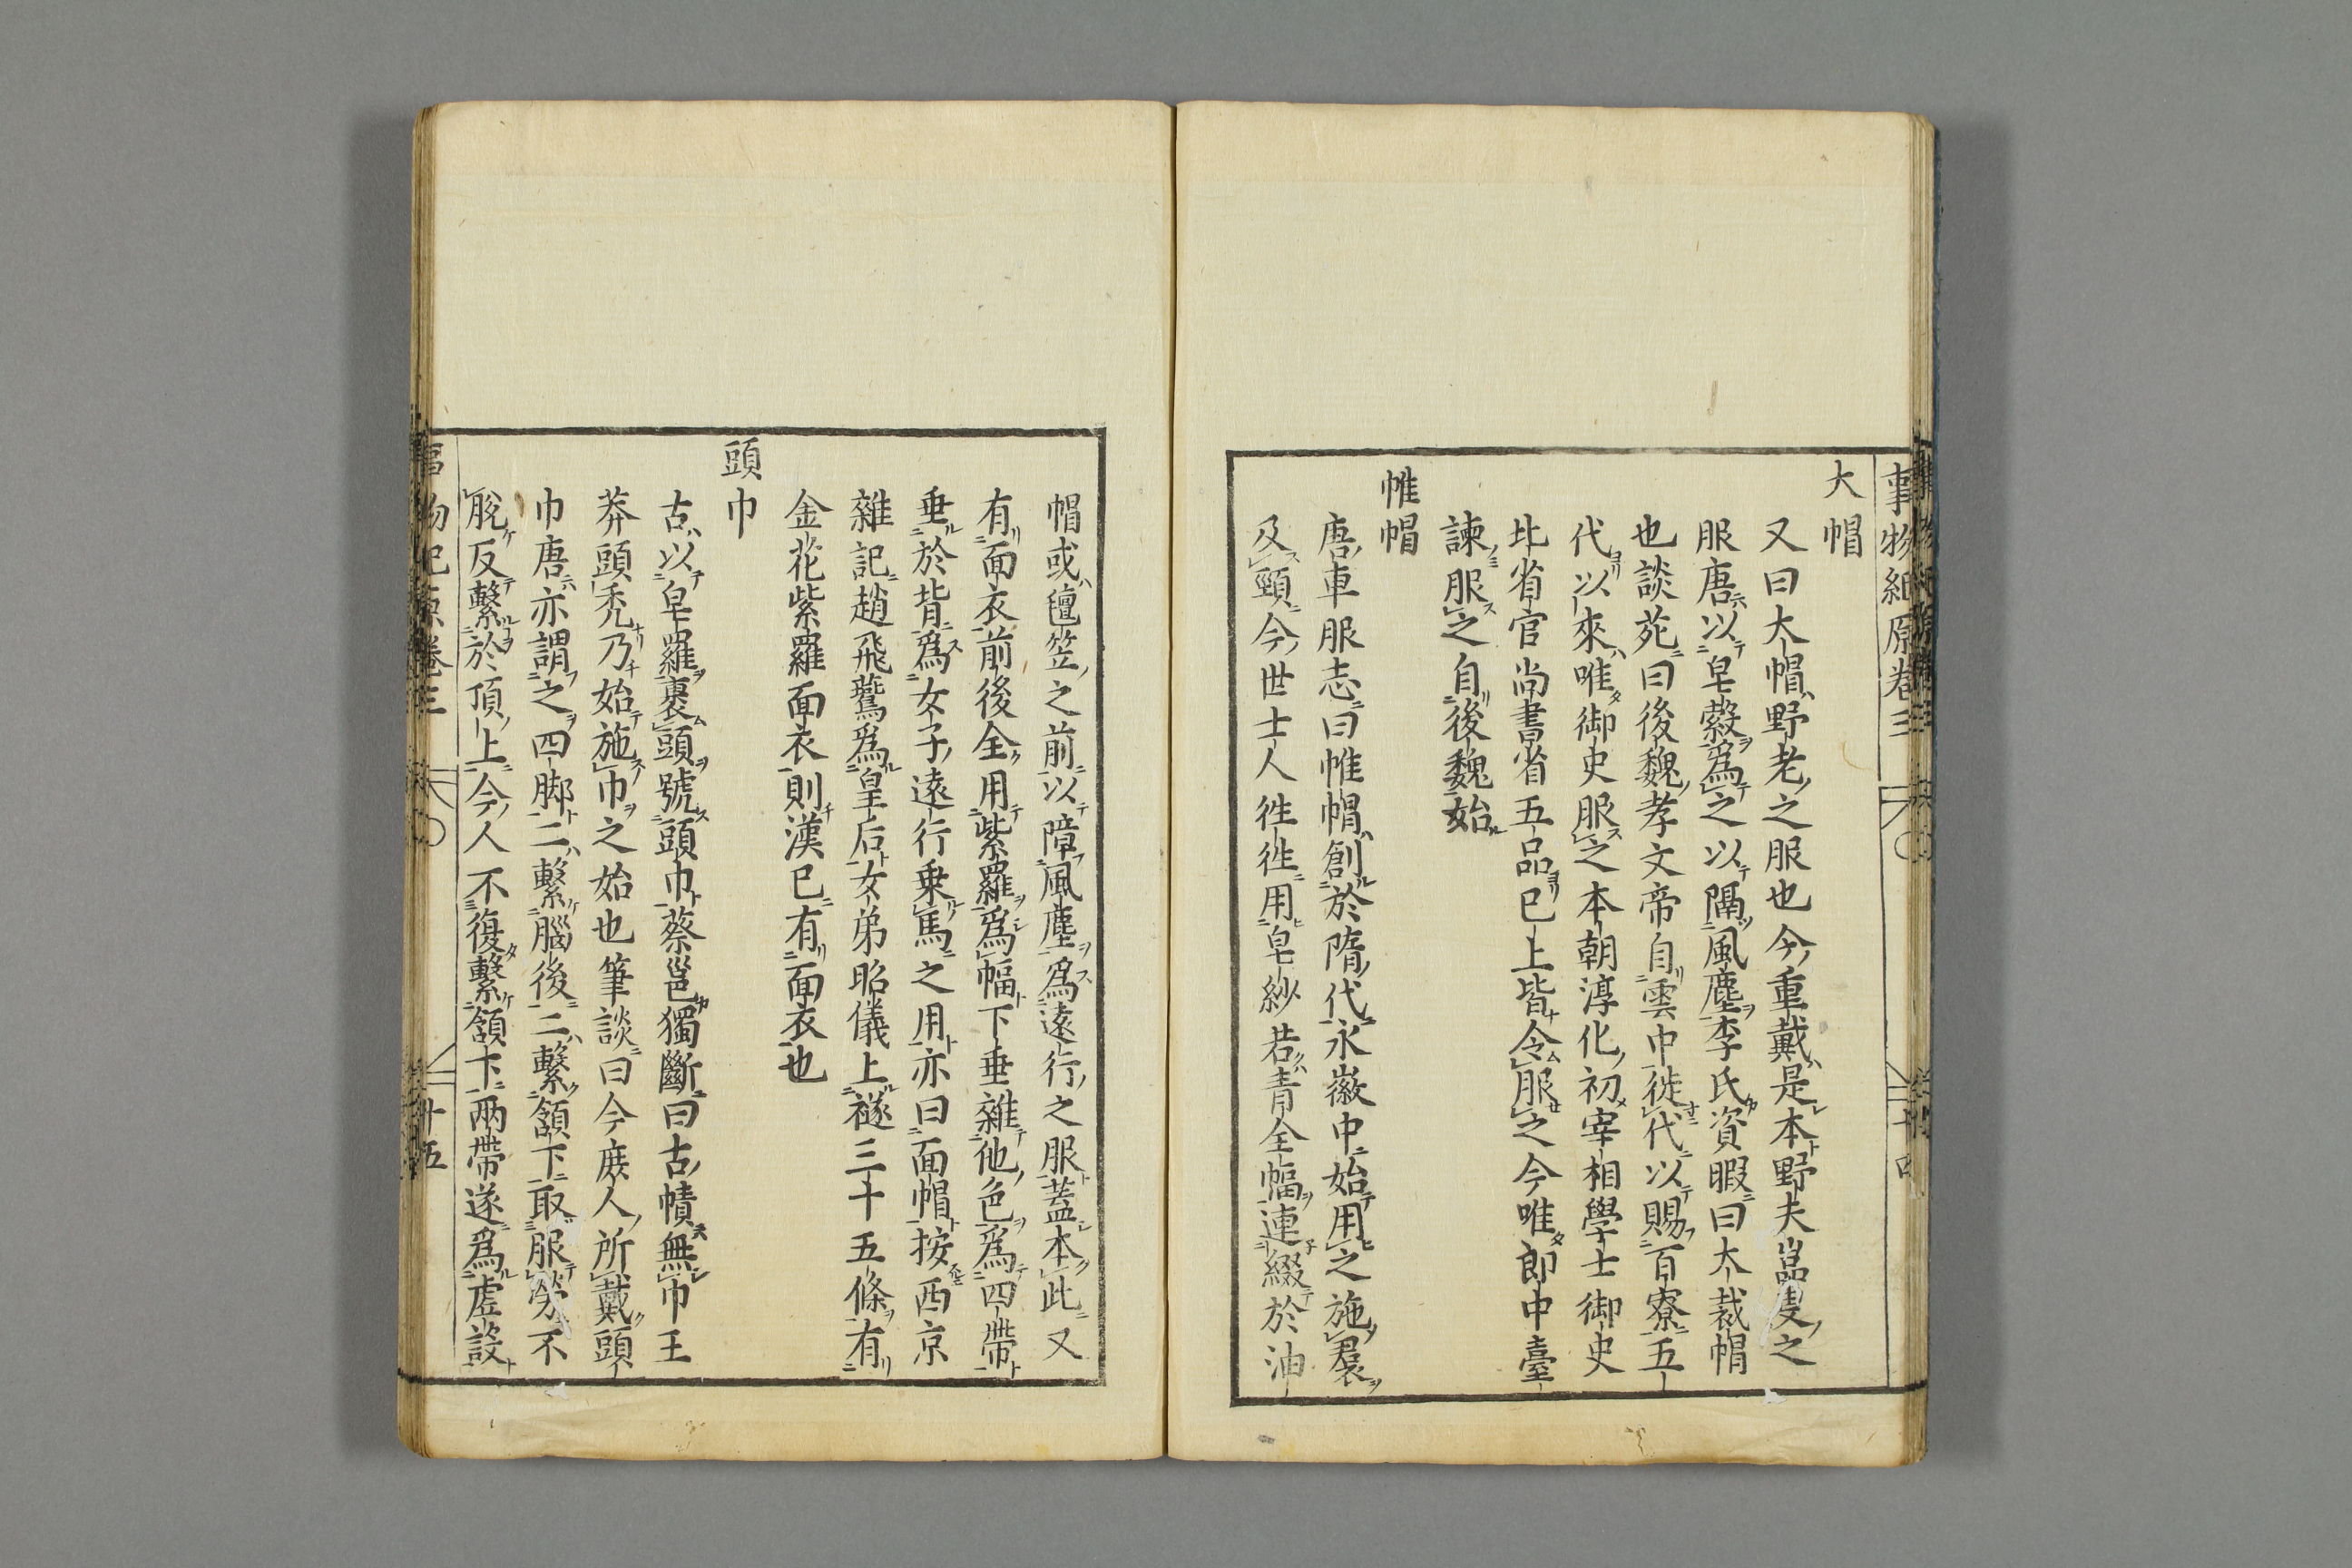 事物紀原卷三
大帽
又曰大帽野老之服也今重戴是本野夫嵓叟之
服唐以皂縠爲之以隔風塵李氏資暇曰大裁帽
也談苑曰後魏孝文帝自雲中徙代以賜百寮五
代以來唯御史服之本朝淳化初宰相學士御史
北省官尚書省五品已上皆令服之今唯郎中臺
諫服之自後魏始
帷帽
唐車服志曰帷帽創於隋代永徽中始用之施裠
及頸今世士人徃徃用皂紗若青全幅連綴於油
帽或氊笠之前以障風塵爲遠行之服蓋本此又
有面衣前後全用紫羅爲幅下垂雜他色爲四帶
垂於背爲女子遠行乗馬之用亦曰面帽按西京
雜記趙飛鷰爲皇后女弟昭儀上襚三十五條有
金花紫羅面衣則漢已有面衣也
頭巾
古以皂羅裹頭號頭巾蔡邕獨斷曰古幘無巾王
莽頭禿乃始施巾之始也筆談曰今庶人所戴頭
巾唐亦謂之四脚二繫腦後二繫頷下取服勞不
脫反繫於頂上今人不復繫頷下兩帶遂爲虛設
事物紀原卷三
十五